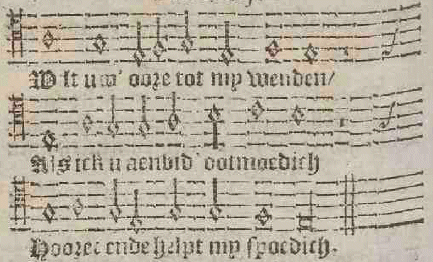 Wilt uw' ooze tot my wenden/
Als ick u aenbid' ootmoedich
Hoozet ende helpt my spoedich.